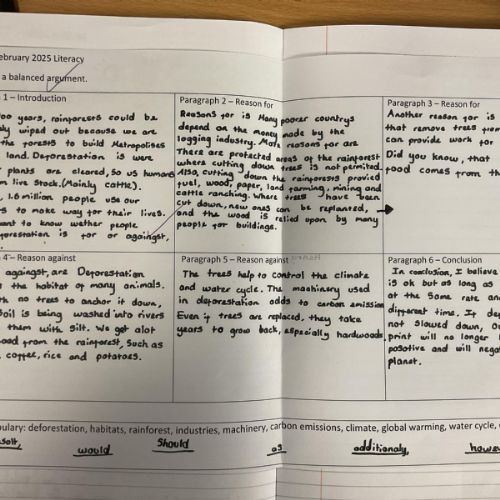 ebruary 2025 Literacy
a balanced argument.
1 – Introduction
00 years, rainforests could be
ly wiped out because we are
the forests to build Metropolises
land. Deforestation is were
plants are cleared, so us humans
m live stock. (Mainly cattle).
1.6 million people use our
s to make way for their lives.
ant to know wether people
forestation is for or againgst,
Paragraph 2 – Reason for
Reasons for is Many poorer countrys
depend on the money made by the
logging industry. More reasons for are
There are protected areas of the rainforest
where cutting down trees is not permited
Also, cutting down the rainforests provied
fuel, wood, paper, land farming, mining and
cattle ranching. Where trees have been
cut down, new ones can be replanted,
and the wood is relied upon by many
people for buildings.
Paragraph 3 – Reason for
Another reason for is
that remove trees pro
can provide work for
Did you know, that
food comes from th
4 – Reason against
againgst, are Deforestation
the habitat of many animals.
th no trees to anchor it down,
soil is being washed into rivers
them with silt. We get alot
ood from the rainforest, such as
, coffee, rice and potatoes.
Paragraph 5 – Reason against
The trees help to control the climate
and water cycle. The machinery used
in deforestation adds to carbon emission
Even if trees are replaced, they take
years to grow back, especially hardwoods
Paragraph 6 – Conclusion
In conclusion, I believe
is ok but as long as
at the same rate an
different time. If de
not slowed down, ou
print will no longer
posotive and will nega
planet.
bulary: deforestation, habitats, rainforest, industries, machinery, carbon emissions, climate, global warming, water cycle,
would
Should
as
additionaly,
howe